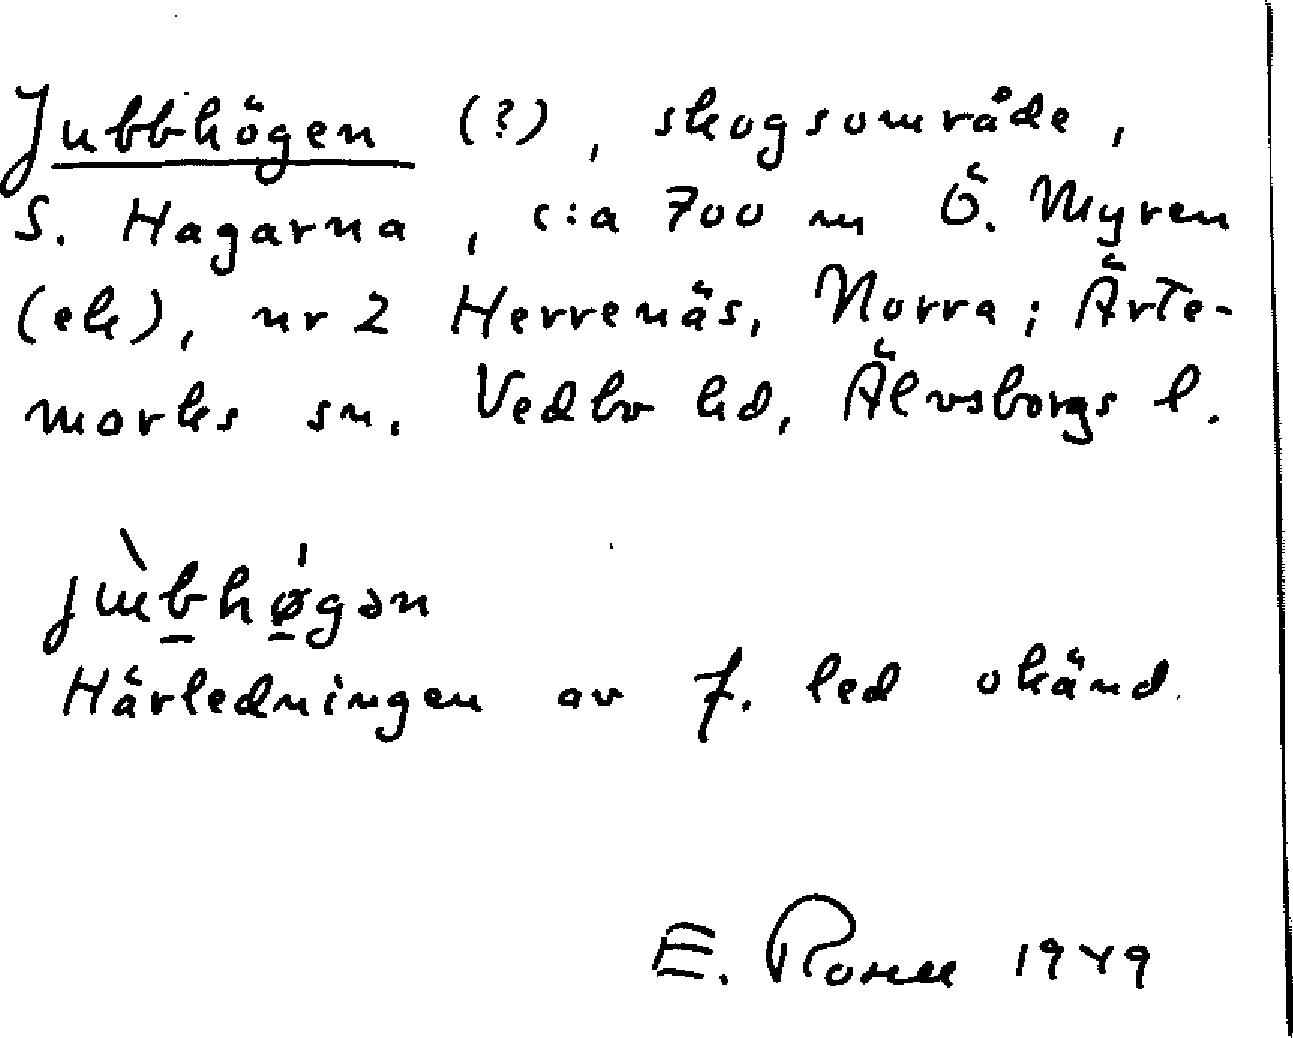 Jubbhögen (?), skogsområde,
S. Hagarna, c:a 700 m Ö. Myren
(ek), nr 2 Herrenäs, Norra; Ärte-
marks sn. Vedbo hd, Älvsborgs l.
Härledningen av f. led okänd.
E. 1949